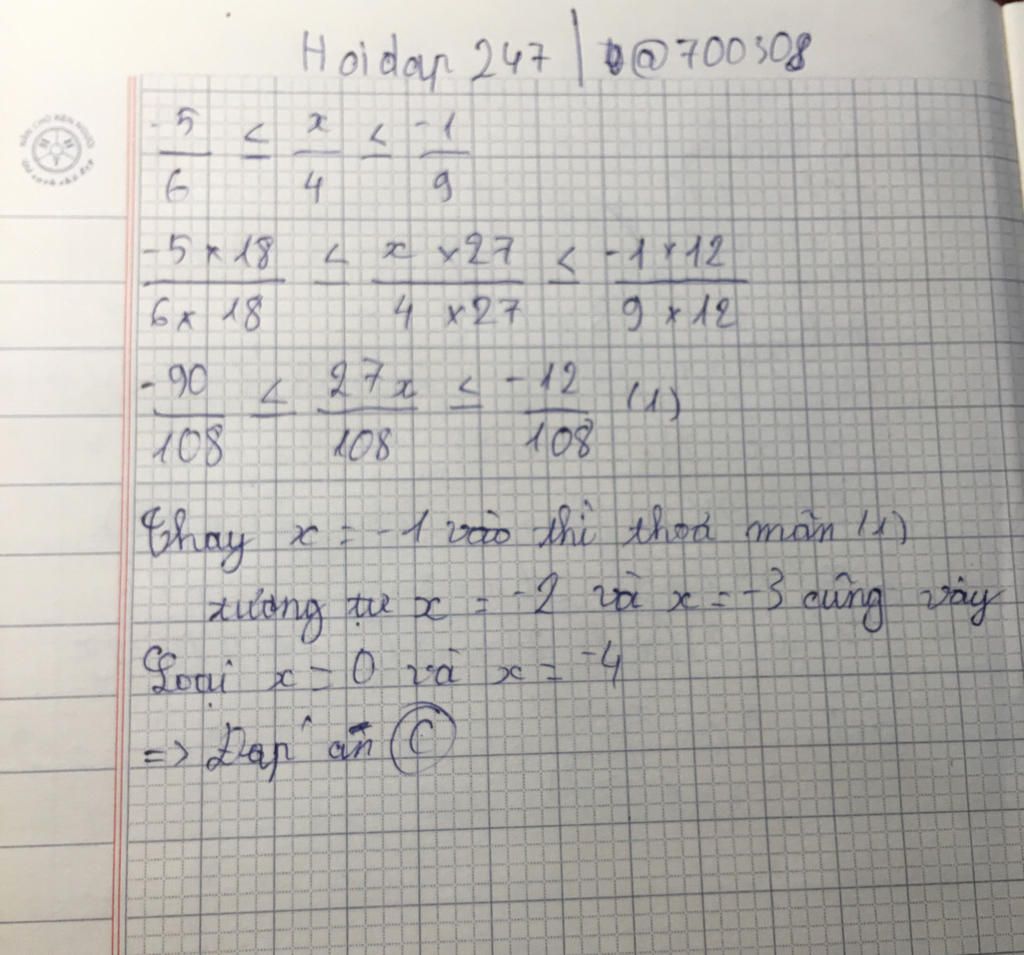 Hoidap 247 | @700308
-5/6 ≤ x/4 ≤ -1/9
-5×18/6×18 ≤ x×27/4×27 ≤ -1×12/9×12
-90/108 ≤ 27x/108 ≤ -12/108 (1)
Thay x = -1 vào thì thoả mãn (1)
tương tự x = -2 và x = -3 cũng vậy
Loại x = 0 và x = -4
=> Đáp án C